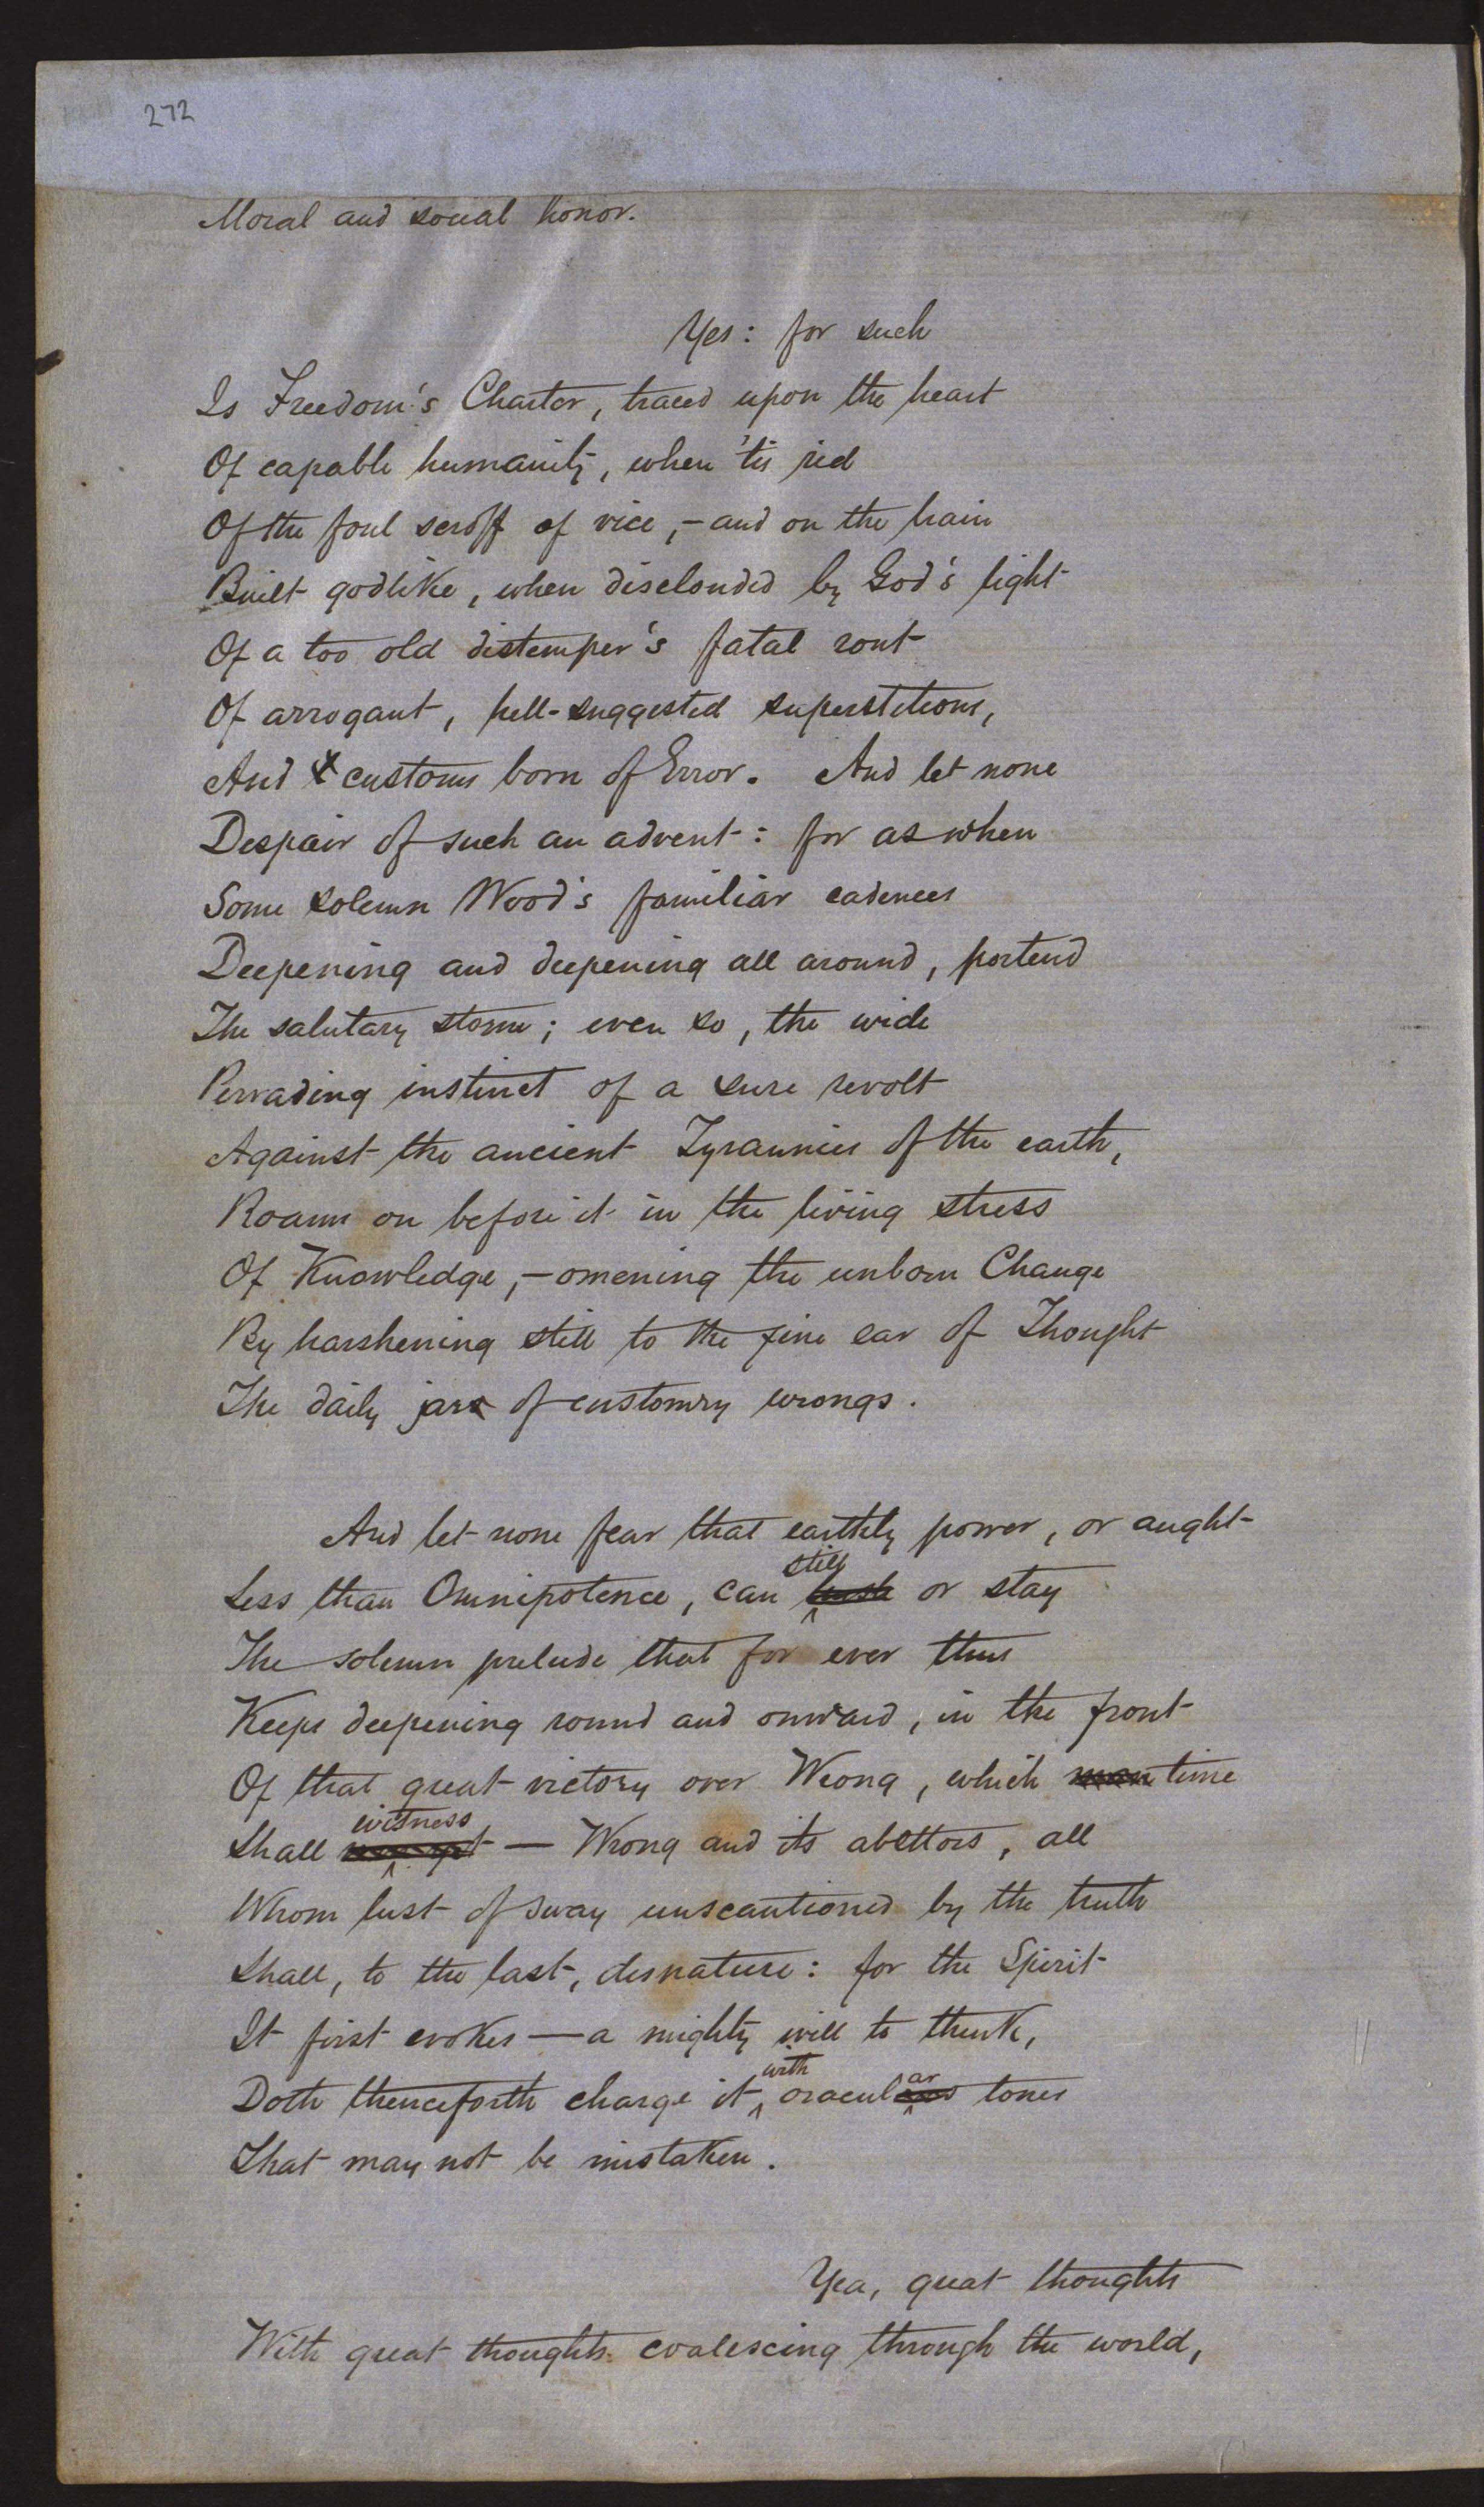 272
Moral and social honor.
Yes: for such
Is Freedom's Charter, traced upon the heart
Of capable humanity, when 'tis rid
Of the foul scroff of vice,—and on the brain
Built godlike, when disclouded by God's light
Of a too old distemper's fatal rout
Of arrogant, hell-suggested superstitions,
And customs born of Error. And let none
Despair of such an advent: for as when
Some solemn Wood's familiar cadences
Deepening and deepening all around, portend
The salutary storm; even so, the wide
Pervading instinct of a sure revolt
Against the ancient Tyrannies of the earth,
Roams on before it in the living stress
Of Knowledge,—omening the unborn Change
By harshening still to the fine ear of Thought
The daily jars of customry wrongs.
And let none fear that earthly power, or aught
still
Less than Omnipotence, can hush or stay
The solemn prelude that for ever thus
Keeps deepening round and onward, in the front
Of that great victory over Wrong, which man time
witness
Shall — Wrong and its abettors, all
Whom lust of sway unscautioned by the truth
Shall, to the last, disnature: for the Spirit
It first evokes — a mighty will to think,
with ar
Doth thenceforth charge it oracul tones
That may not be mistaken.
Yea, great thoughts
With great thoughts coalescing through the world,